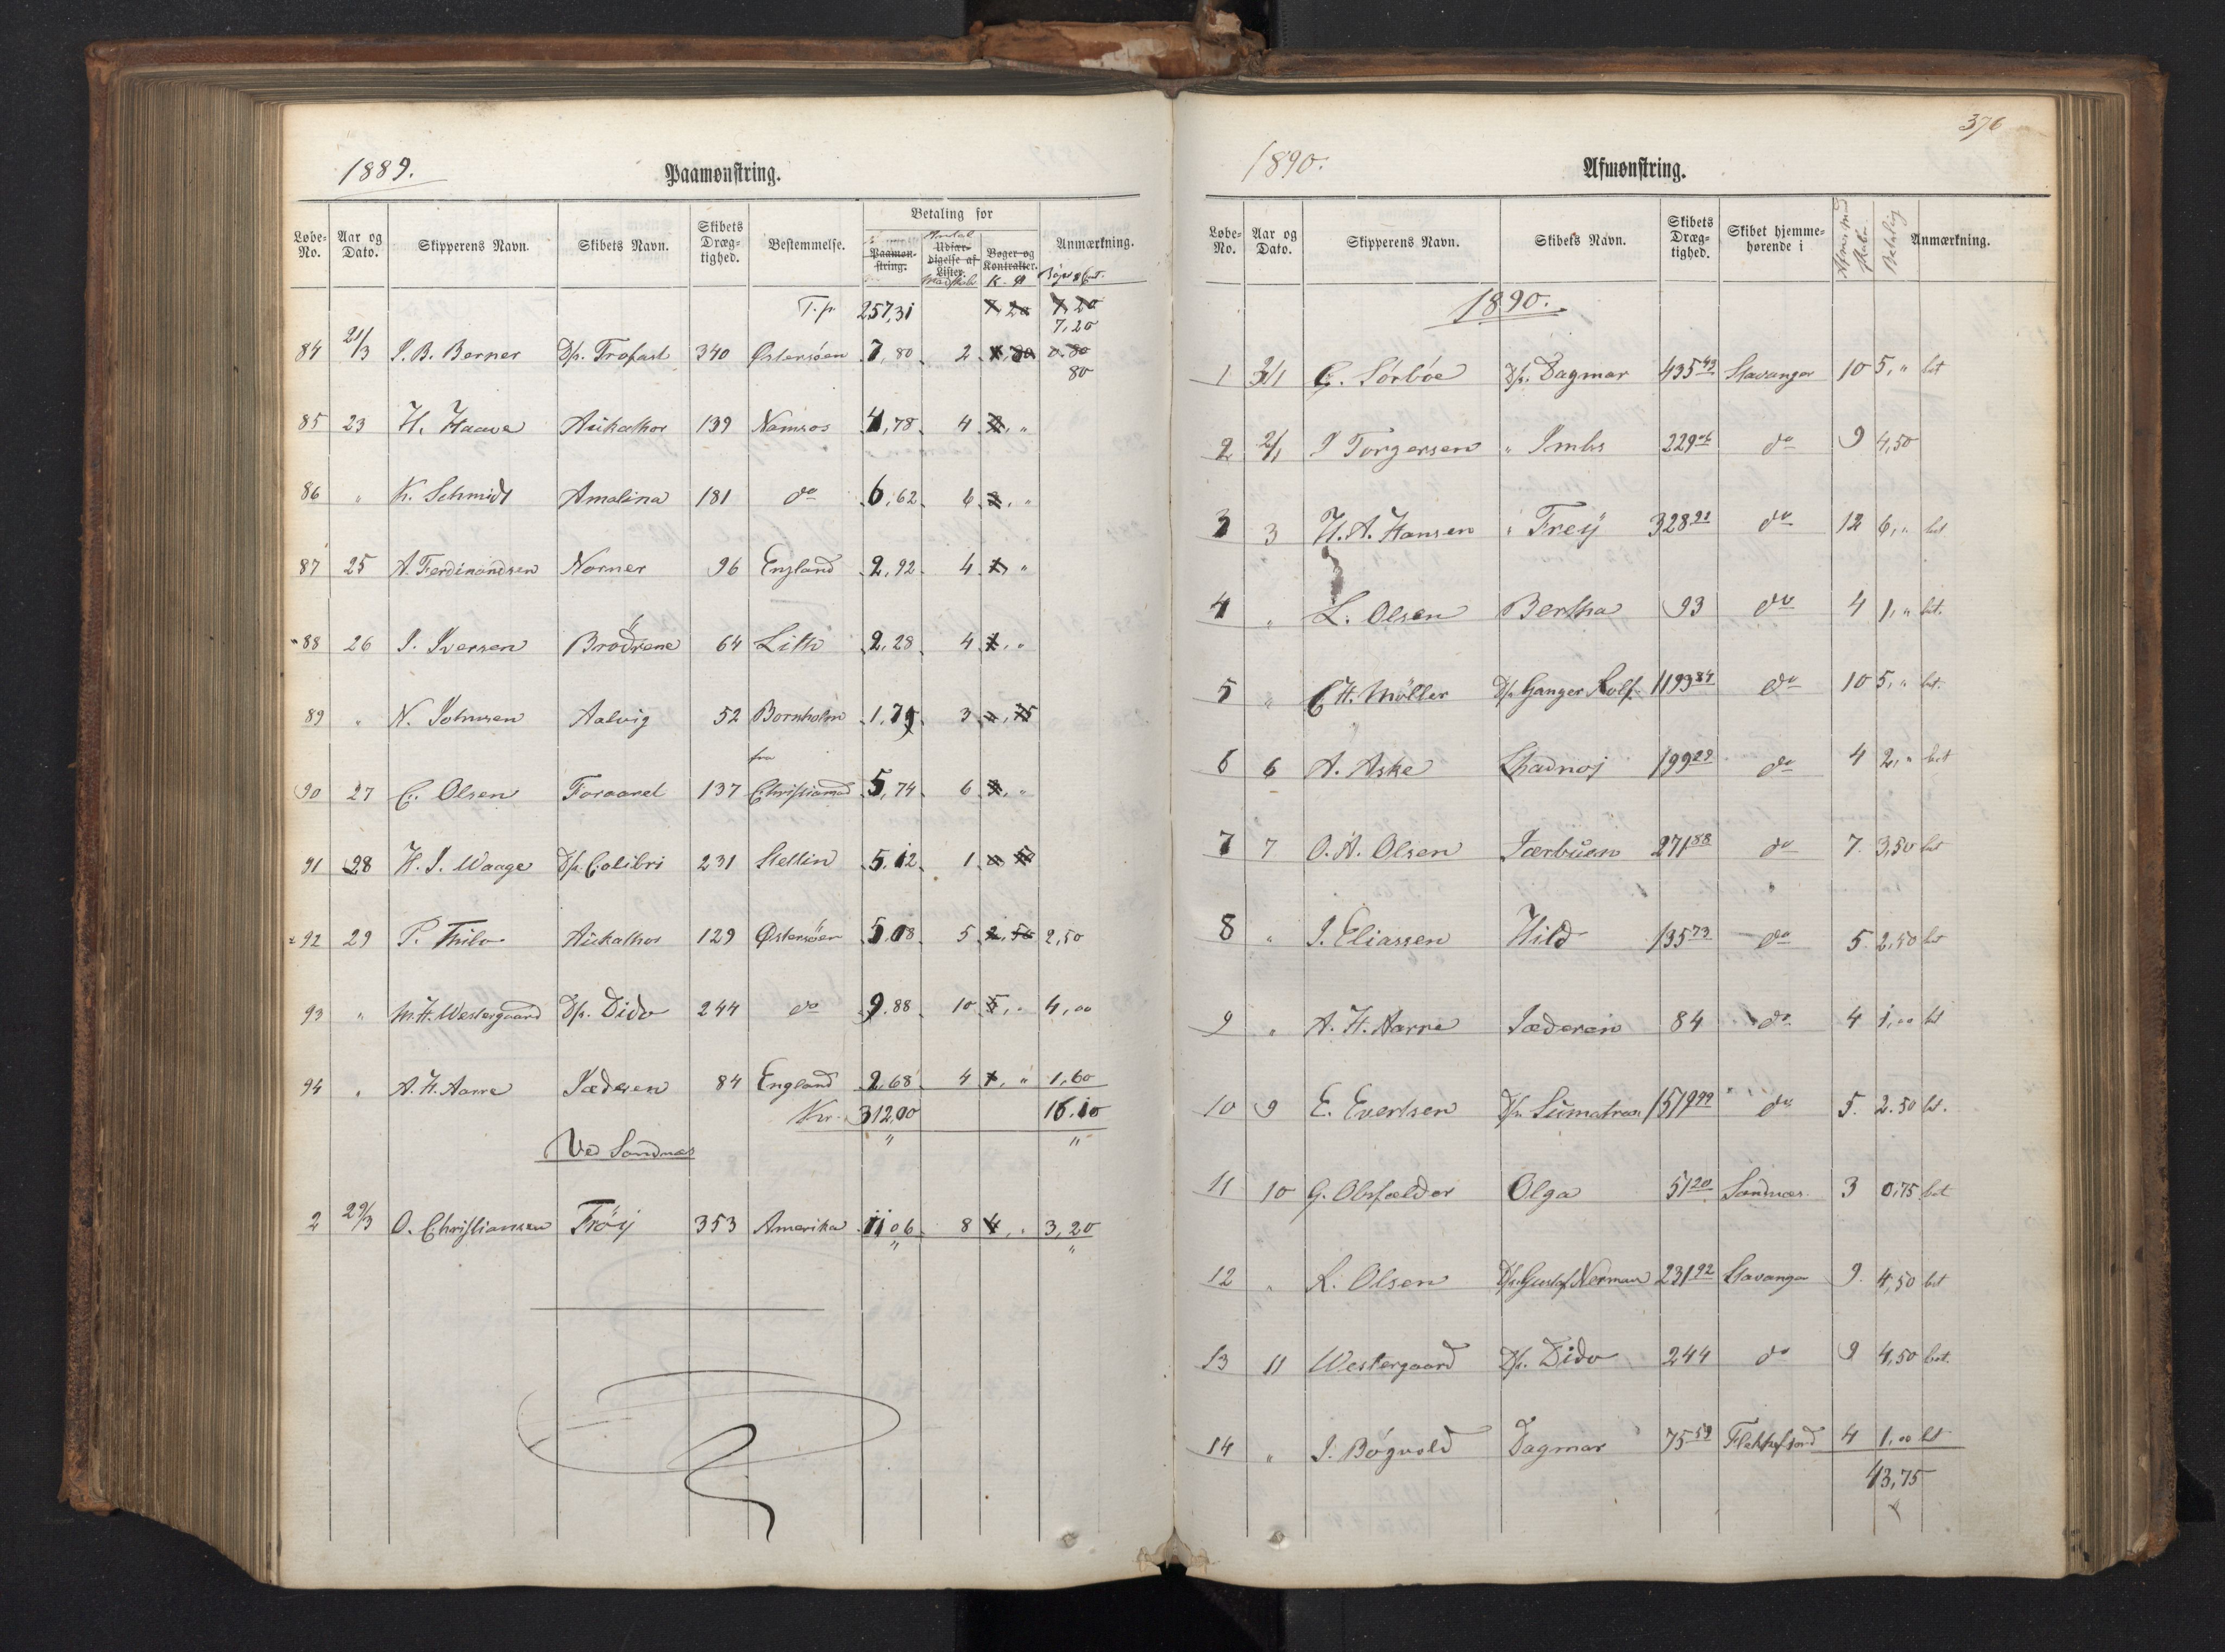 1889. Paamønstring.
Løbe-No. Aar og Dato. Skipperens Navn. Skibets Navn. Skibets Dræg-tighed. Bestemmelse. Betaling for Paamøn-string. Antal Udfær-digelse af Lister Mandskab Bøger og Kontrakter. K. Ø Anmærkning.
T. p. 257,31 7 20 7,20
7,20
84 21/3 J. B. Berner D/s. Trofast 340 Østersøen 7,80 2 0.80
80
85 23 H. Haave Aukathor 139 Namsos 4,78 4 2, "
86 " K. Schmidt Amalina 181 do 6,62 6 3, "
87 25 A. Ferdinandsen Norner 96 England 2,92 4 1, "
88 26 J. Iversen Brødrene 64 Lith 2,28 4 1, "
89 " N. Johnsen Aalvig 52 Bornholm 1,75 3 ", 75
fra
90 27 C. Olsen Foraaret 137 Christiansd 5,74 6 3, "
91 28 H. J. Waage D/s. Colibri 231 Stettin 5.12 1 " 50
92 29 P. Thilo Aukathor 129 Østersöen 5,08 5 2,50 2,50
93 " M. H. Westergaard D/s. Dido 244 do 9.88 10 5, " 4,00
94 " A. H. Aarre Jæderen 84 England 2,68 4 1, " 1,60
Kr. 312,00 16.10
" "
Ved Sandnæs
2 29/3 O. Christiansen Fröy 353 Amerika 11 06 8 4, " 3,20
" "
376
1890. Afmønstring.
Løbe-No. Aar og Dato. Skipperens Navn. Skibets Navn. Skibets Dræg-tighed. Skibet hjemme-hørende i Betaling Anmærkning.
1890.
1 2/1 G. Sörböe D/s. Dagmar 435 43 Stavanger 10 5, " bet
2 2/1 J Torgersen " Imbs 229 06 do 9 4,50
3 3 H. A. Hansen " Freÿ 328 21 do 12 6, " bet
4 " L. Olsen Bertha 93 do 4 1, " bet.
5 " C H. Möller D/s Ganger Rolf 1193 84 do 10 5, " bet.
6 6 A. Aske 199 29 do 4 2, " bet
7 7 O. A. Olsen Jærbuen 271 88 do 7. 3,50 bet
8 " J. Eliassen Hild 135 73 do 5. 2,50 bet
9 " A. H. Aarre Jæderen 84 do 4 1,00 bet
10 9 E. Evertsen D/s. Sumatra 1519 99 do 5. 2.50 bet.
11 10 G. Obsfelder Olga 51 20 Sandnæs 3 0,75 bet
12 " R. Olsen D/s. Gustaf Nerman 231 92 Stavanger 9. 4,50 bet
13 11 Westergaard D/s. Dido 244 do 9 4,50 bet.
14 " J. Bøgvold Dagmar 75 59 Flekkefjord 4 1.00 bet
43,75